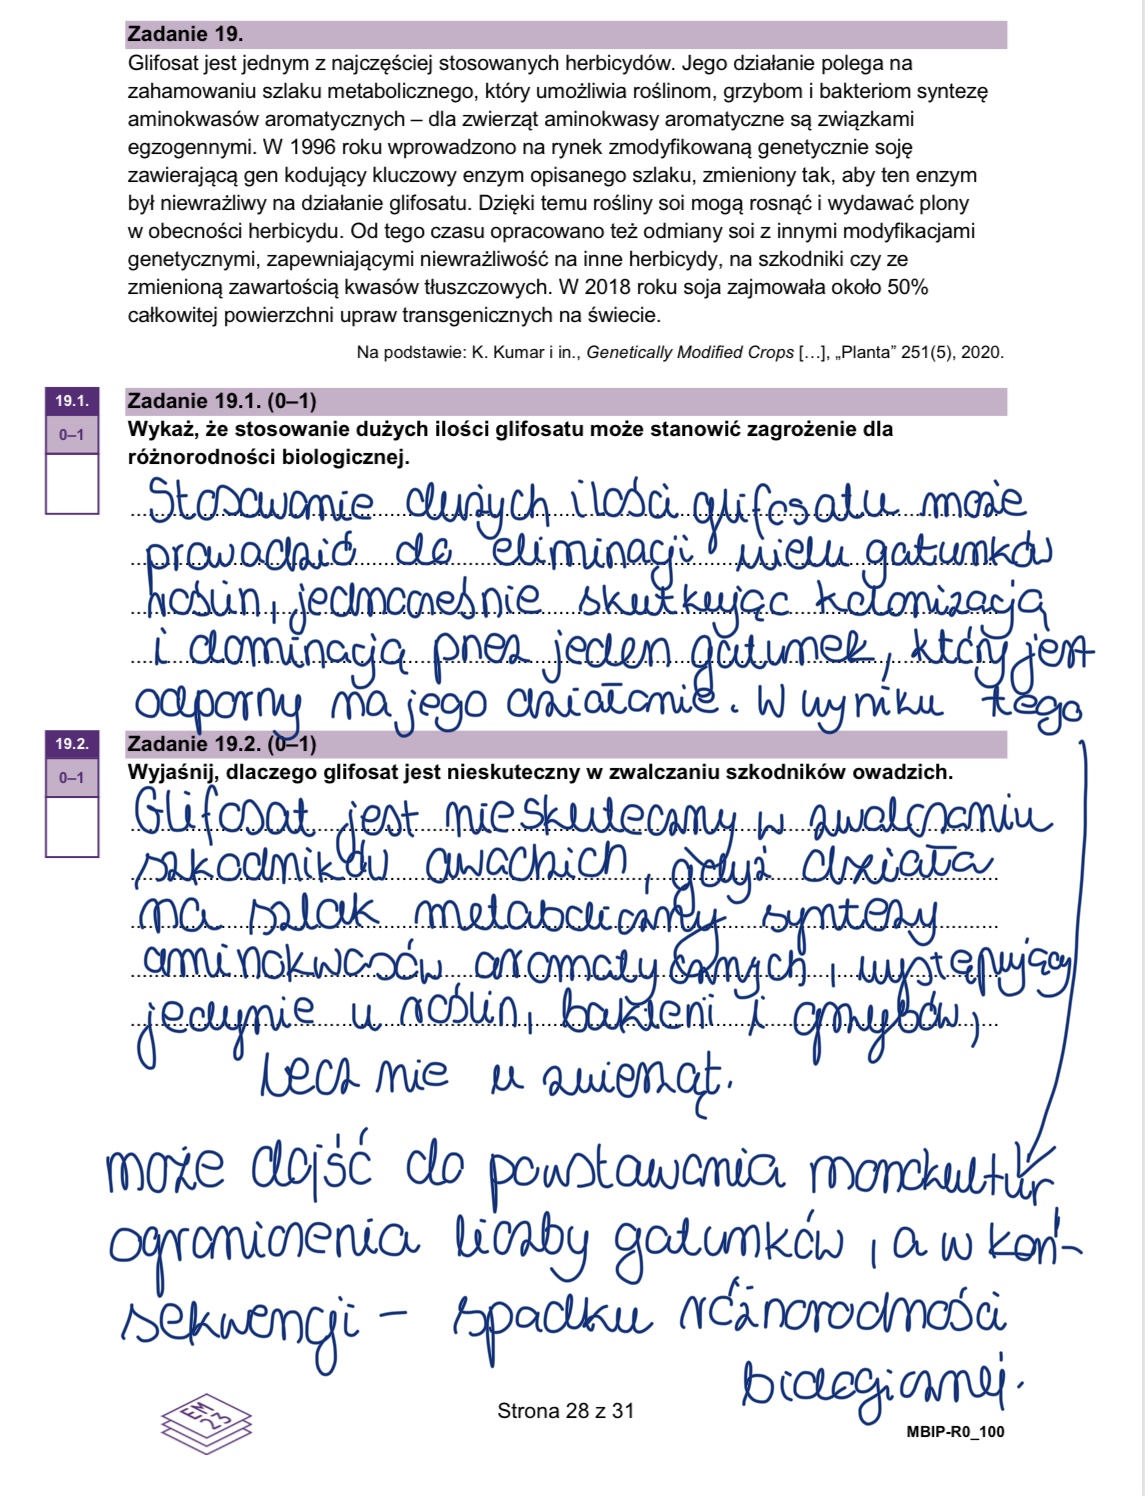 Zadanie 19.
Glifosat jest jednym z najczęściej stosowanych herbicydów. Jego działanie polega na
zahamowaniu szlaku metabolicznego, który umożliwia roślinom, grzybom i bakteriom syntezę
aminokwasów aromatycznych – dla zwierząt aminokwasy aromatyczne są związkami
egzogennymi. W 1996 roku wprowadzono na rynek zmodyfikowaną genetycznie soję
zawierającą gen kodujący kluczowy enzym opisanego szlaku, zmieniony tak, aby ten enzym
był niewrażliwy na działanie glifosatu. Dzięki temu rośliny soi mogą rosnąć i wydawać plony
w obecności herbicydu. Od tego czasu opracowano też odmiany soi z innymi modyfikacjami
genetycznymi, zapewniającymi niewrażliwość na inne herbicydy, na szkodniki czy ze
zmienioną zawartością kwasów tłuszczowych. W 2018 roku soja zajmowała około 50%
całkowitej powierzchni upraw transgenicznych na świecie.
Na podstawie: K. Kumar i in., Genetically Modified Crops […], „Planta” 251(5), 2020.
19.1.
0–1
Zadanie 19.1. (0–1)
Wykaż, że stosowanie dużych ilości glifosatu może stanowić zagrożenie dla
różnorodności biologicznej.
Stosowanie dużych ilości glifosatu może
prowadzić do eliminacji wielu gatunków
roślin, jednocześnie skutkując kolonizacją
i dominacją przez jeden gatunek, który jest
odporny na jego działanie. W wyniku tego
19.2.
0–1
Zadanie 19.2. (0–1)
Wyjaśnij, dlaczego glifosat jest nieskuteczny w zwalczaniu szkodników owadzich.
Glifosat jest nieskuteczny w zwalczaniu
szkodników owadzich, gdyż działa
na szlak metaboliczny syntezy
aminokwasów aromatycznych, występujący
jedynie u roślin, bakterii i grzybów,
lecz nie u zwierząt.
może dojść do powstawania monokultur
ograniczenia liczby gatunków, a w kon-
sekwencji – spadku różnorodności
biologicznej.
EM
23
Strona 28 z 31
MBIP-R0_100